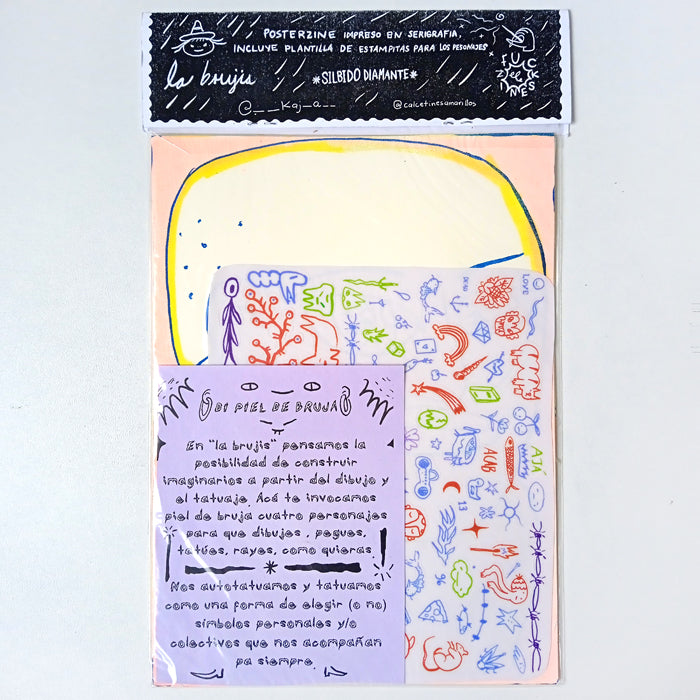 POSTERZINE IMPRESO EN SERIGRAFIA,
INCLUYE PLANTILLA DE ESTAMPITAS PARA LOS PESONAJES
la brujis
*SILBIDO DIAMANTE*
FUCK
el
ZINES
@___kaj_a__
@calcetinesamarillos
LOVE
DI PIEL DE BRUJA
En "la brujis" pensamos la
posibilidad de construir
imaginarios a partir del dibujo y
el tatuaje. Acá te invocamos
piel de bruja cuatro personajes
para que dibujes , pegues,
tatúes, rayes, como quieras.
Nos autotatuamos y tatuamos
como una forma de elegir (o no)
símbolos personales y/o
colectivos que nos acompañan
pa siempre.
ACAB
AJÁ
13